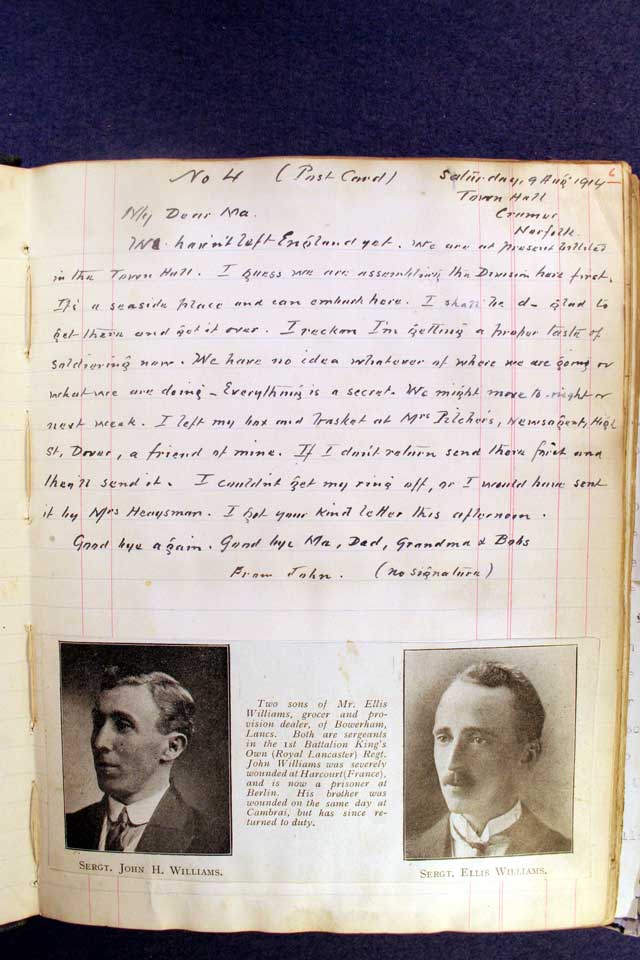 No 4 (Post Card) Saturday, 9 Aug 1914
6
Town Hall
My Dear Ma. Cromer
Norfolk.
We havn't left England yet. We are at present billeted
in the Town Hall. I guess we are assembling the Division here first.
It's a seaside place and can embark here. I shall be d- glad to
get there and get it over. I reckon I'm getting a proper taste of
soldiering now. We have no idea whatever of where we are going or
what we are doing - Everything is a secret. We might move to-night or
next week. I left my box and basket at Mrs Pilcher's, Newsagents, High
St, Dover, a friend of mine. If I don't return send there first and
they'll send it. I couldn't get my ring off, or I would have sent
it by Mrs Heaysman. I got your kind letter this afternoon.
Good bye again. Good bye Ma, Dad, Grandma & Bobs
From John. (no signature)
Two sons of Mr. Ellis
Williams, grocer and pro-
vision dealer, of Bowerham,
Lancs. Both are sergeants
in the 1st Battalion King's
Own (Royal Lancaster) Regt.
John Williams was severely
wounded at Harcourt (France),
and is now a prisoner at
Berlin. His brother was
wounded on the same day at
Cambrai, but has since re-
turned to duty.
SERGT. JOHN H. WILLIAMS.
SERGT. ELLIS WILLIAMS.